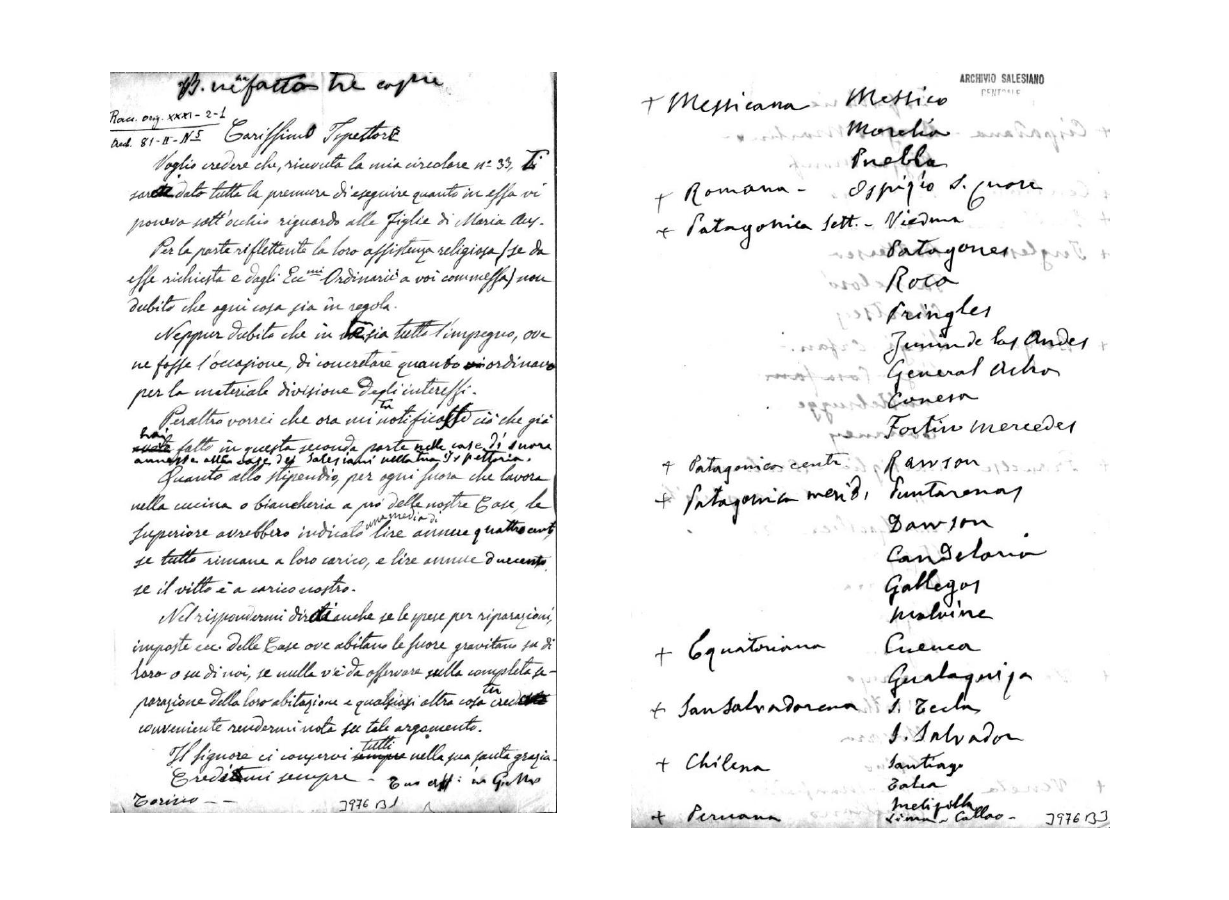 B. ne ho fatto tre copie
Racc. org. XXXI-2-1
Ard. 81-II-N5
Carissimo Ispettore
Voglio credere che, ricevuta la mia circolare nº 33, Ti
sarai dato tutta la premura di eseguire quanto in essa vi
ponevo sott'occhio riguardo alle Figlie di Maria Aus.
Per la parte riflettente la loro assistenza religiosa (se da
esse richiesta e dagli Ecc.mi Ordinarii a voi commessa) non
dubito che ogni cosa sia in regola.
Neppur dubito che in te sia tutto l'impegno, ove
ne fosse l'occasione, di concretare quanto vi ordinavo
per la materiale divisione degli interessi.
Peraltro vorrei che ora mi Tu notificassi ciò che già
hai fatto in questa seconda parte nelle case di suore
annesse alle case dei Salesiani nella tua Ispettoria.
Quanto allo stipendio, per ogni suora che lavora
nella cucina o biancheria a pro delle nostre Case, le
superiore avrebbero indicato una media di lire annue quattrocento
se tutto rimane a loro carico, e lire annue duecento,
se il vitto è a carico nostro.
Nel rispondermi dirai anche se le spese per riparazioni,
imposte ecc. delle Case ove abitano le suore gravitano su di
loro o su di noi, se nulla v'è da osservare sulla completa se-
parazione della loro abitazione e qualsiasi altra cosa tu creda
conveniente rendermi nota su tale argomento.
Il Signore ci conservi tutti sempre nella sua santa grazia.
Credimi sempre - Tuo aff: in G. M.
Torino --
3976 B1
ARCHIVIO SALESIANO
CENTRALE
+ Messicana Messico
Morelia
Puebla
+ Romana - Ospizio S. Cuore
+ Patagonica Sett. - Viedma
Patagones
Roca
Pringles
Junin de los Andes
General Acha
Conesa
Fortin Mercedes
+ Patagonica centr. Rawson
+ Patagonica merid. Puntarenas
Dawson
Candelaria
Gallegos
Malvine
+ Equatoriana Cuenca
Gualaquiza
+ San Salvadorena S. Tecla
S. Salvador
+ Chilena Santiago
Talca
Melipilla
+ Peruana Lima - Callao -
3976 B3